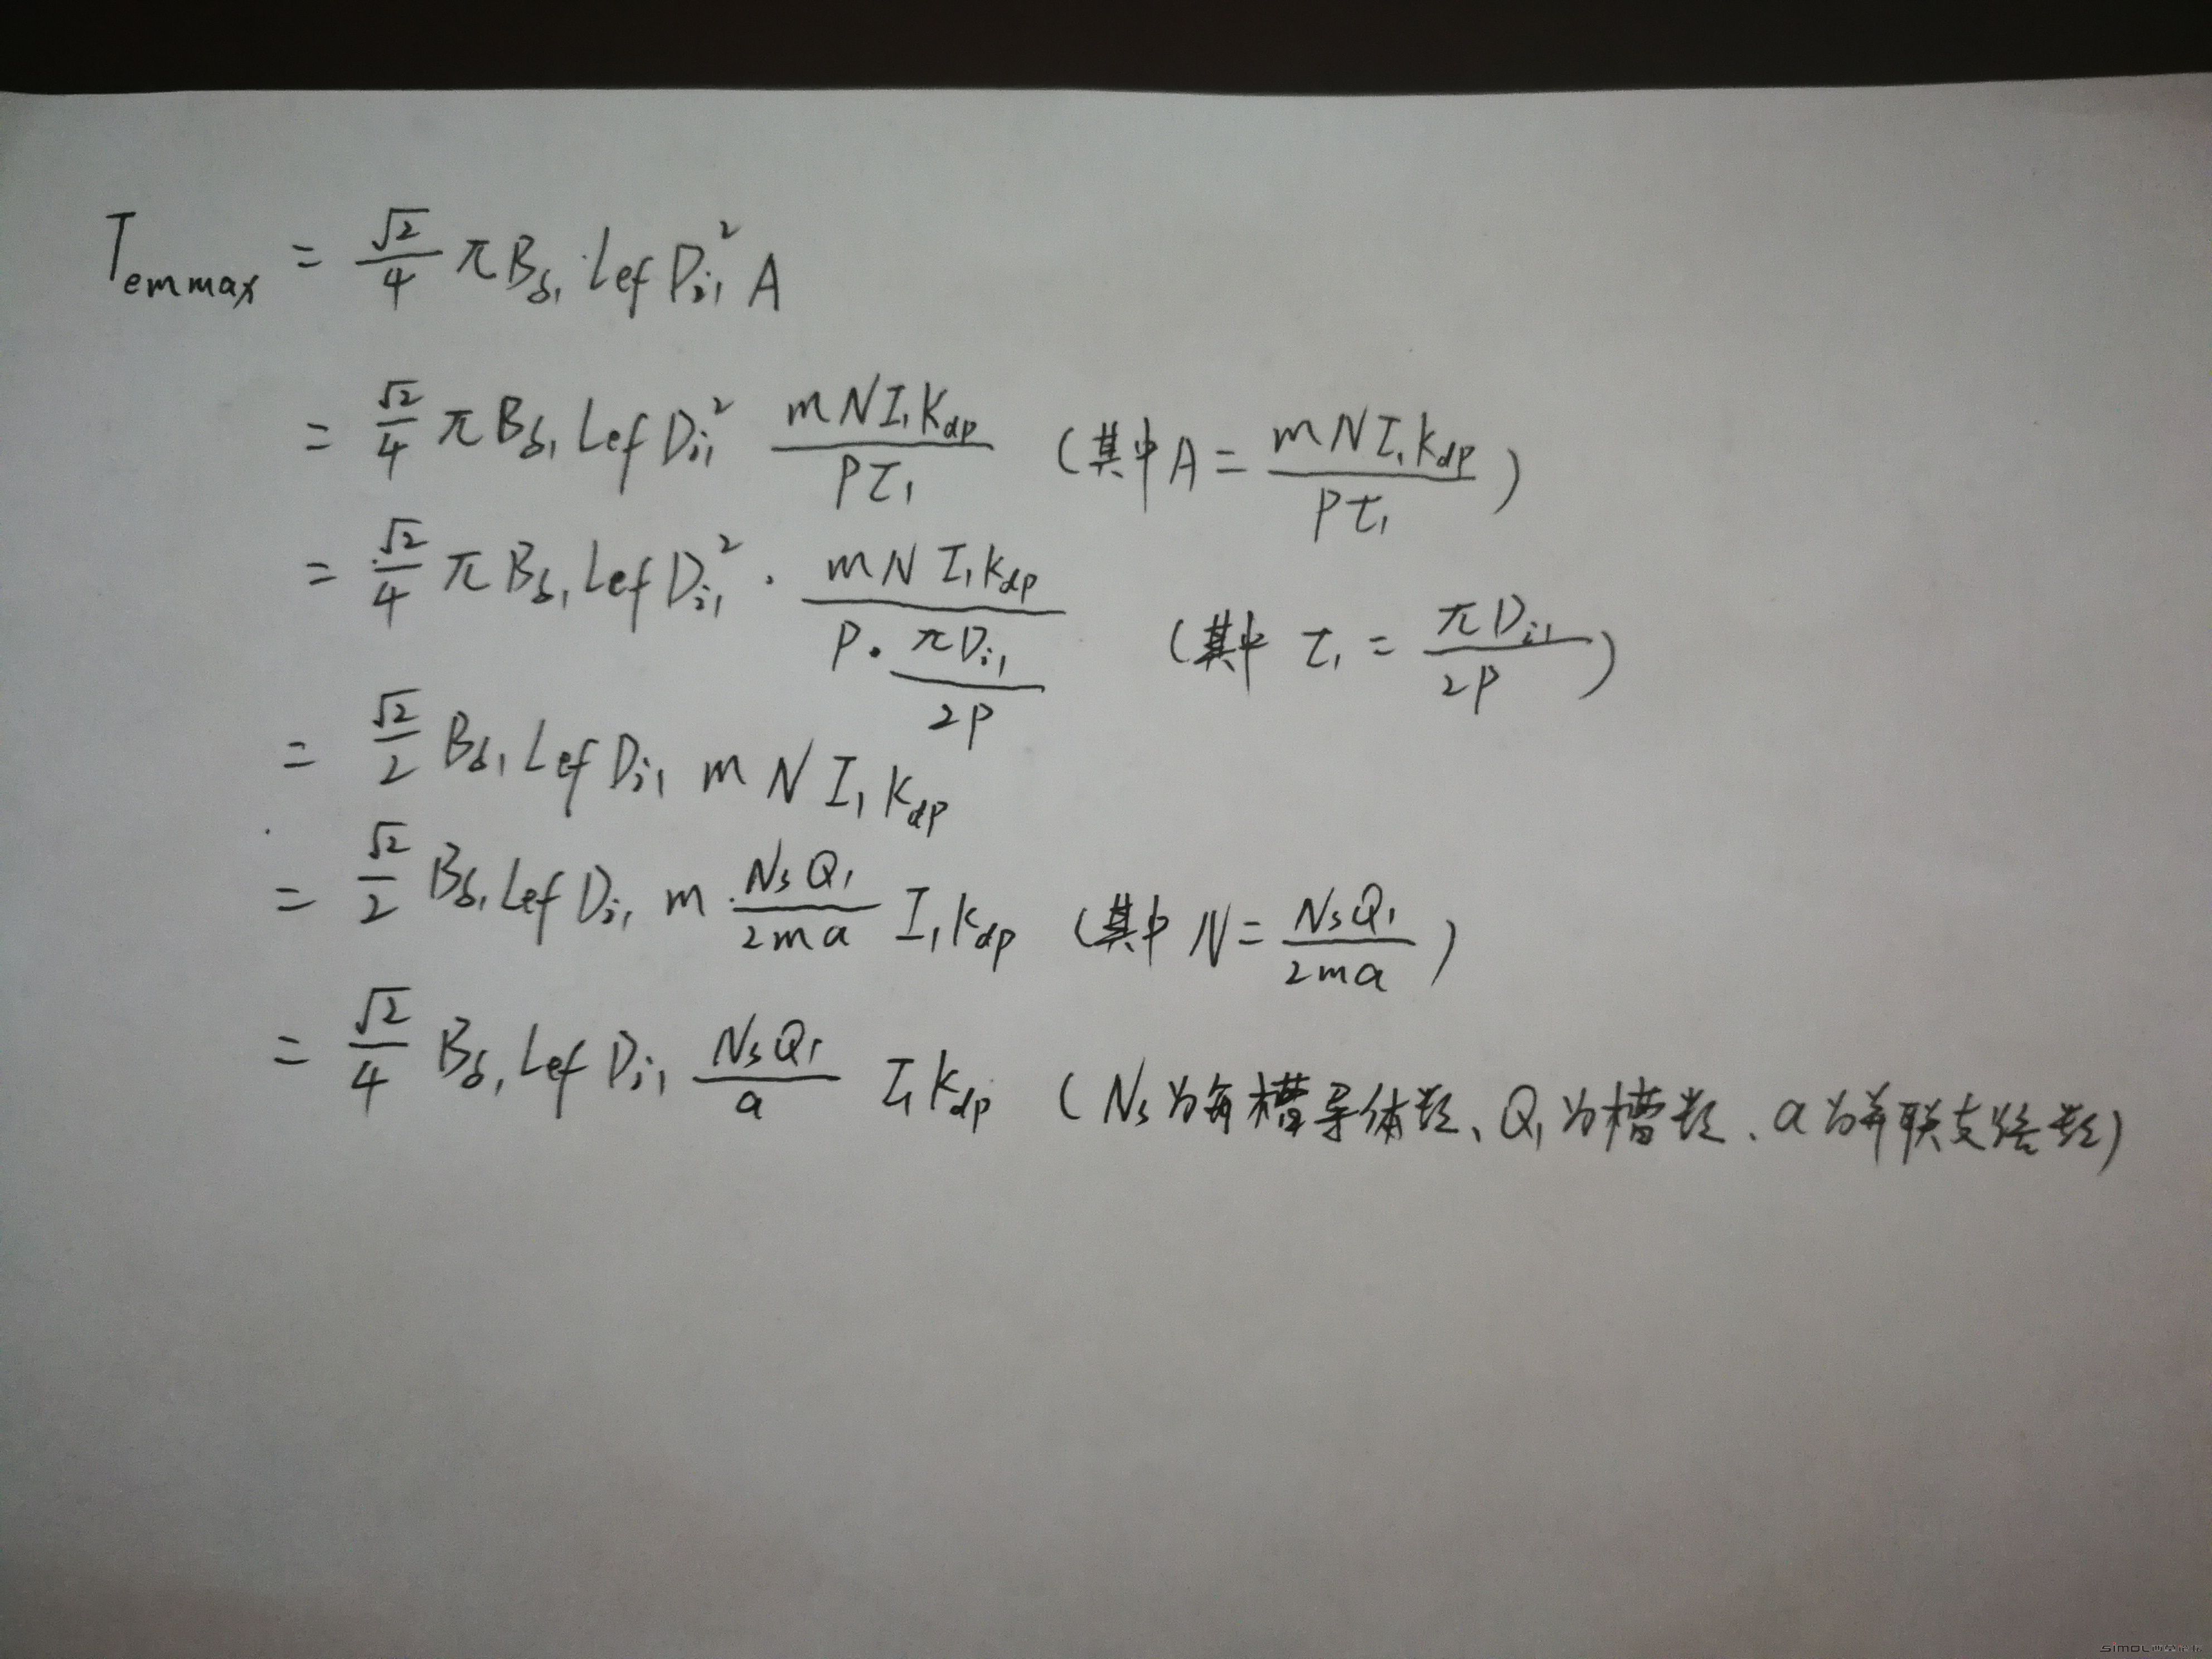 T_{em max} = \frac{\sqrt{2}}{4} π B_{δ1} L_{ef} D_{i1}^2 A
= \frac{\sqrt{2}}{4} π B_{δ1} L_{ef} D_{i1}^2 \frac{m N I_1 K_{dp}}{P τ_1} (其中 A = \frac{m N I_1 K_{dp}}{P τ_1})
= \frac{\sqrt{2}}{4} π B_{δ1} L_{ef} D_{i1}^2 · \frac{m N I_1 K_{dp}}{P · \frac{π D_{i1}}{2P}} (其中 τ_1 = \frac{π D_{i1}}{2P})
= \frac{\sqrt{2}}{2} B_{δ1} L_{ef} D_{i1} m N I_1 K_{dp}
= \frac{\sqrt{2}}{2} B_{δ1} L_{ef} D_{i1} m \frac{N_s Q_1}{2ma} I_1 K_{dp} (其中 N = \frac{N_s Q_1}{2ma})
= \frac{\sqrt{2}}{4} B_{δ1} L_{ef} D_{i1} \frac{N_s Q_1}{a} I_1 K_{dp} (N_s为每槽导体数、Q_1为槽数、a为并联支路数)
SIMOL西莫论坛